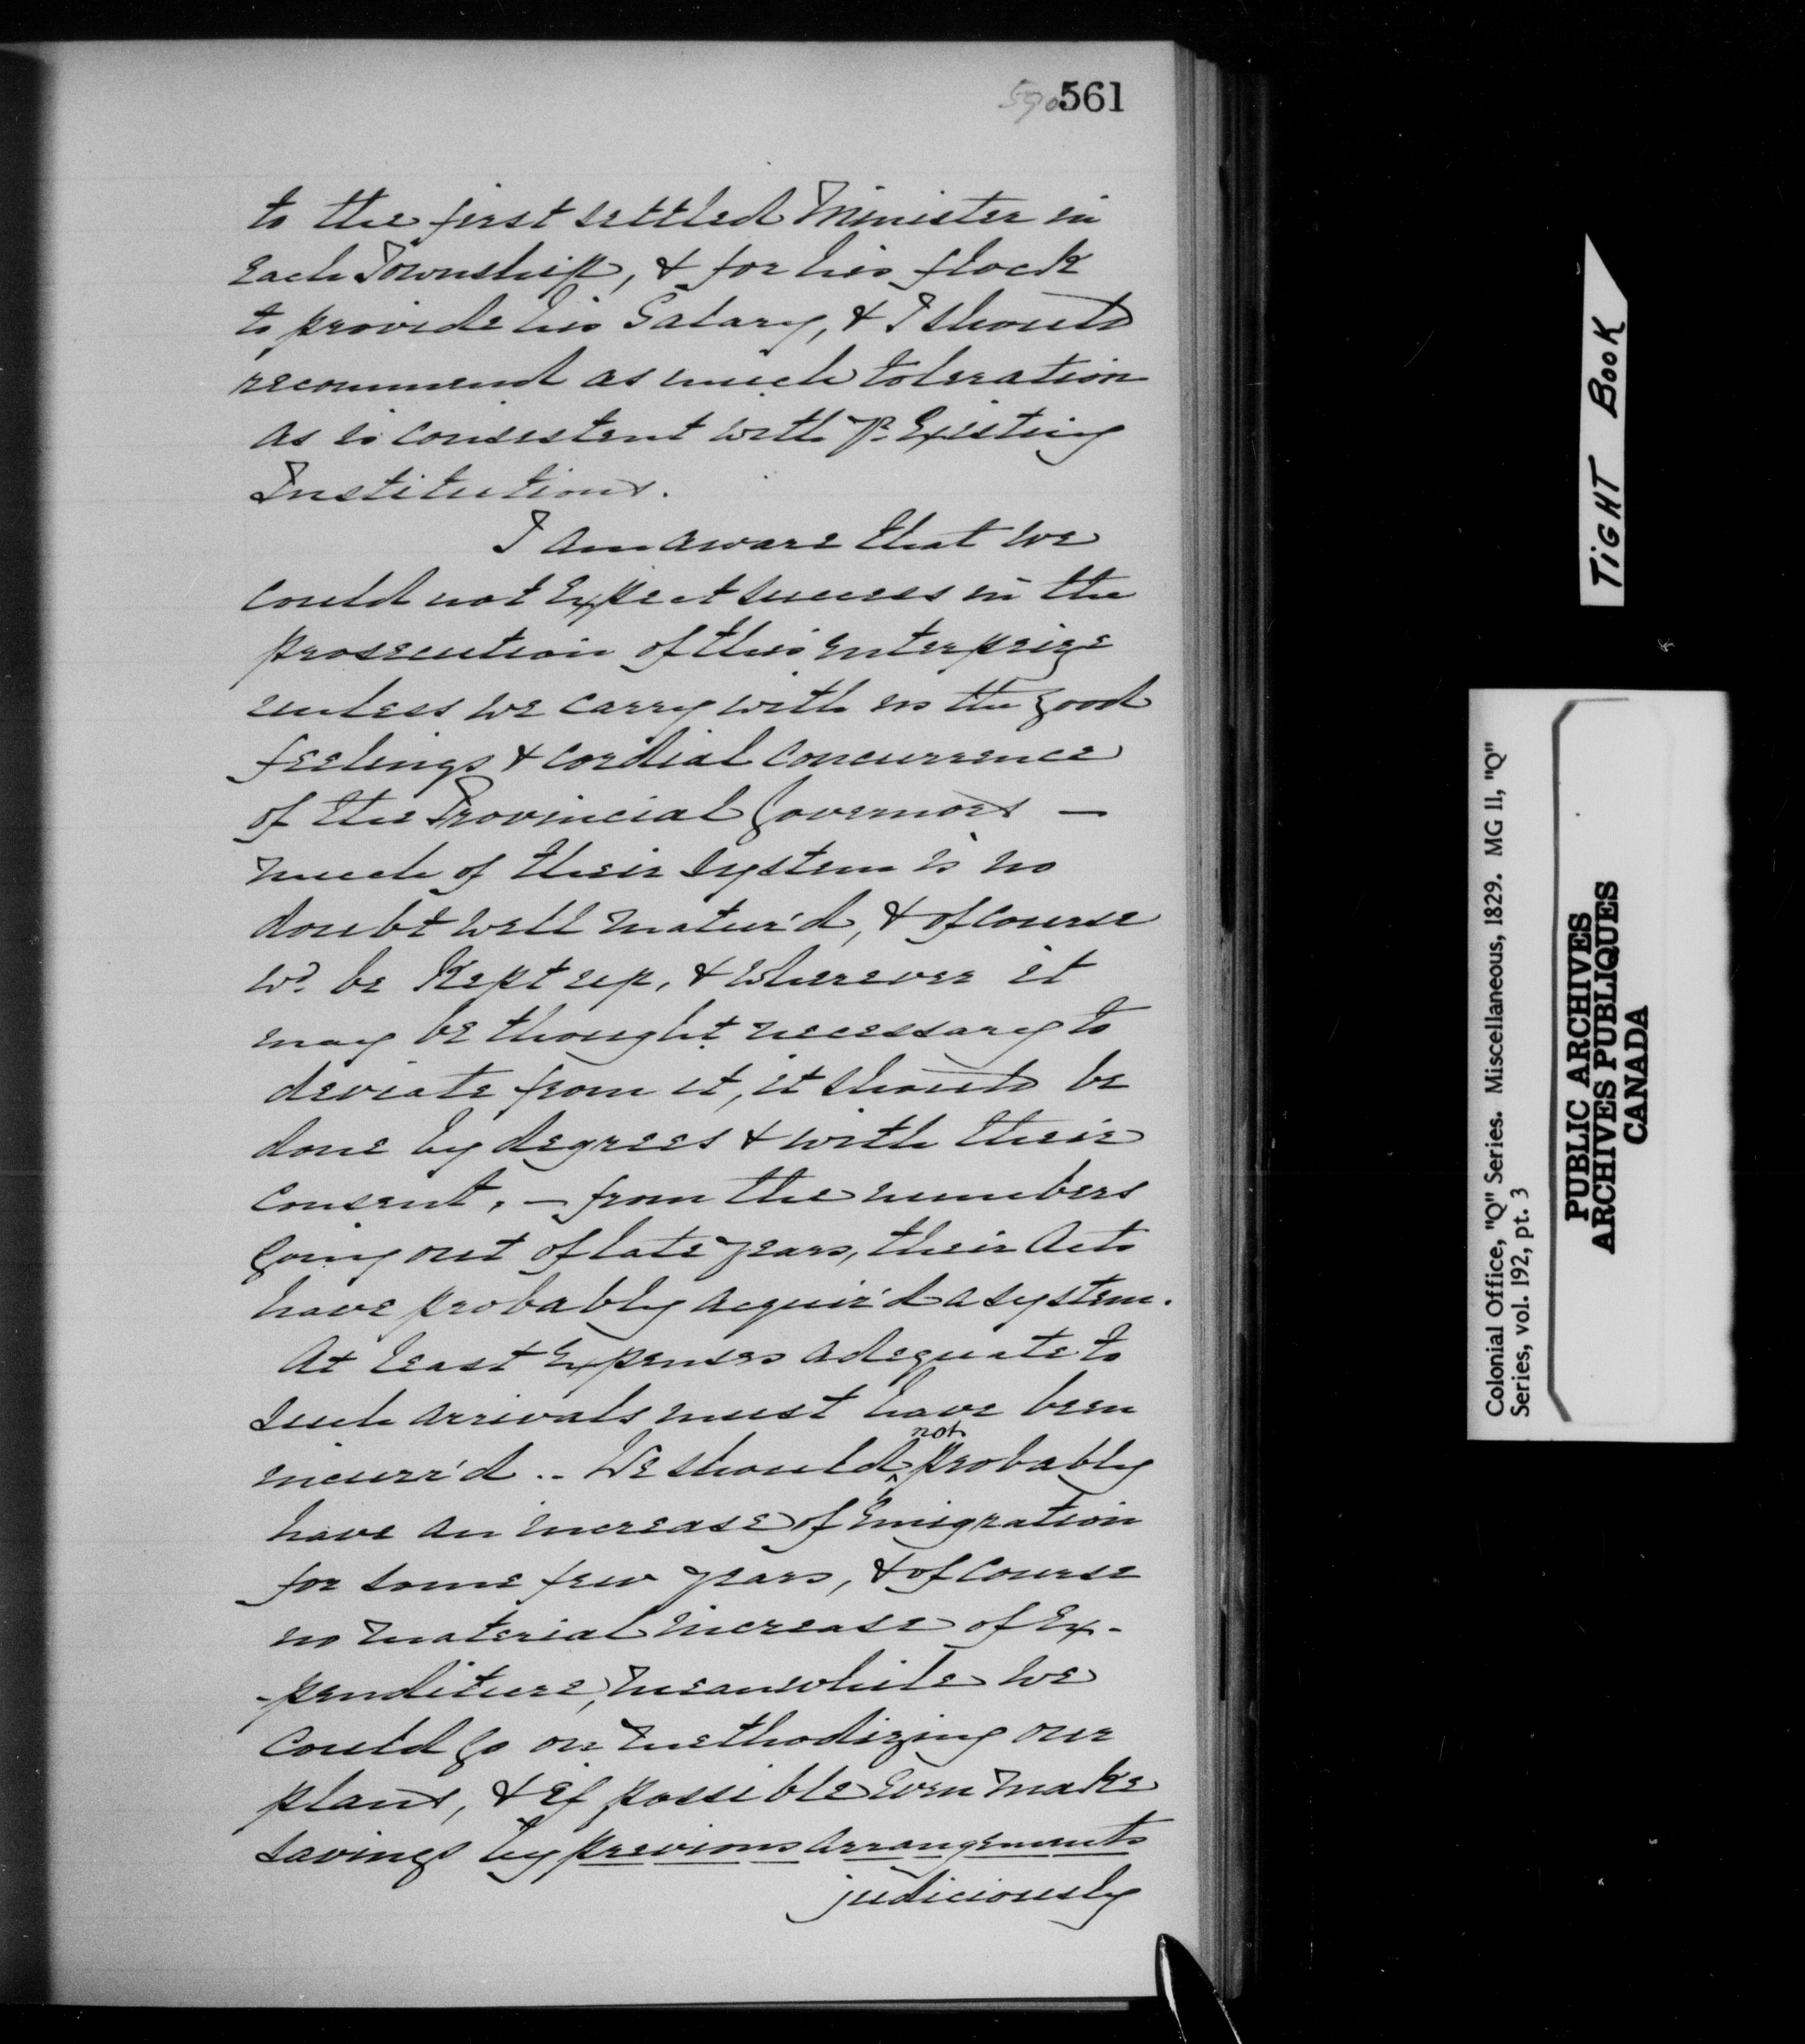 590 561
to the first settled Minister in
Each Township, & for his flock
to provide his Salary, & I should
recommend as much toleration
as is consistent with pr. Existing
Institutions.
I am aware that we
could not Expect success in the
prosecution of this enterprize
unless we carry with us the good
feelings & cordial concurrence
of the Provincial Governors —
much of their system is no
doubt well matur'd, & of course
wd. be Kept up, & wherever it
may be thought necessary to
deviate from it, it should be
done by degrees & with their
consent. — from the numbers
going out of late years, their Acts
have probably acquir'd a system.
At least Expenses adequate to
such arrivals must have been
incurr'd .. We should not probably
have an increase of Emigration
for some few years, & of course
no material increase of Ex-
-penditure, meanwhile we
could go on methodizing our
plans, & if possible Even make
savings by previous arrangements
judiciously
TIGHT BOOK
Colonial Office, "Q" Series. Miscellaneous, 1829. MG 11, "Q"
Series, vol. 192, pt. 3
PUBLIC ARCHIVES
ARCHIVES PUBLIQUES
CANADA